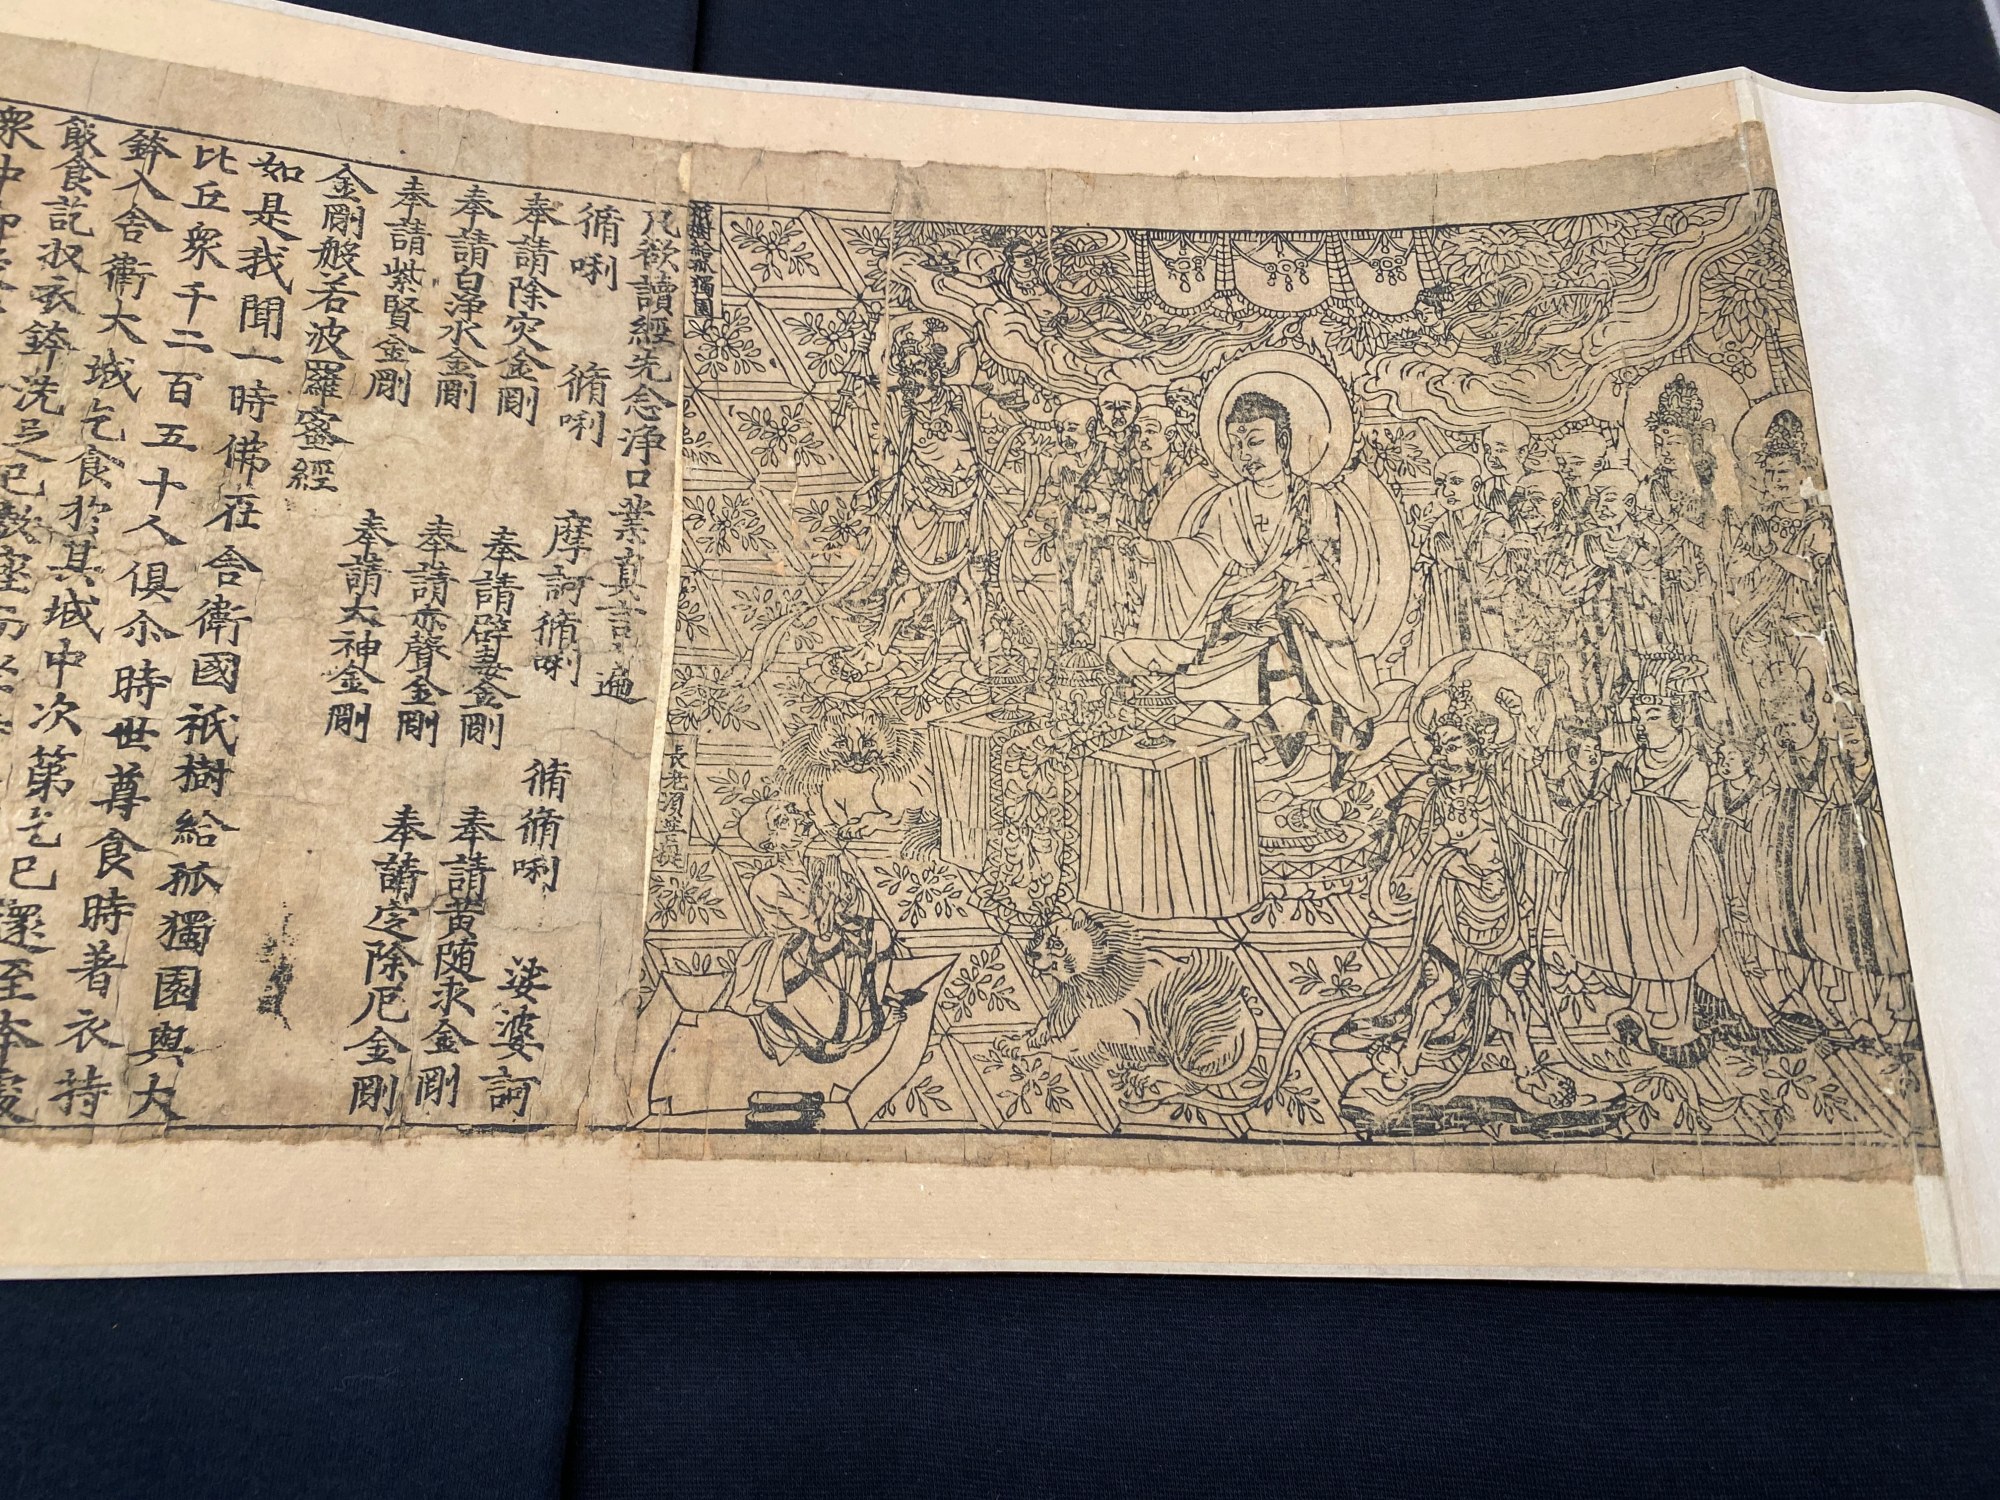 祇樹給孤獨園
長老須菩提
凡欲讀經先念淨口業真言一遍
脩唎 脩唎 摩訶脩唎 脩脩唎 娑婆訶
奉請除灾金剛 奉請辟毒金剛 奉請黄随求金剛
奉請白淨水金剛 奉請赤聲金剛 奉請定除厄金剛
奉請紫賢金剛 奉請大神金剛
金剛般若波羅蜜經
如是我聞一時佛在舍衛國祇樹給孤獨園與大
比丘衆千二百五十人俱尒時世尊食時著衣持
鉢入舍衛大城乞食於其城中次第乞已還至本處
飯食訖收衣鉢洗足已敷座而坐
衆中